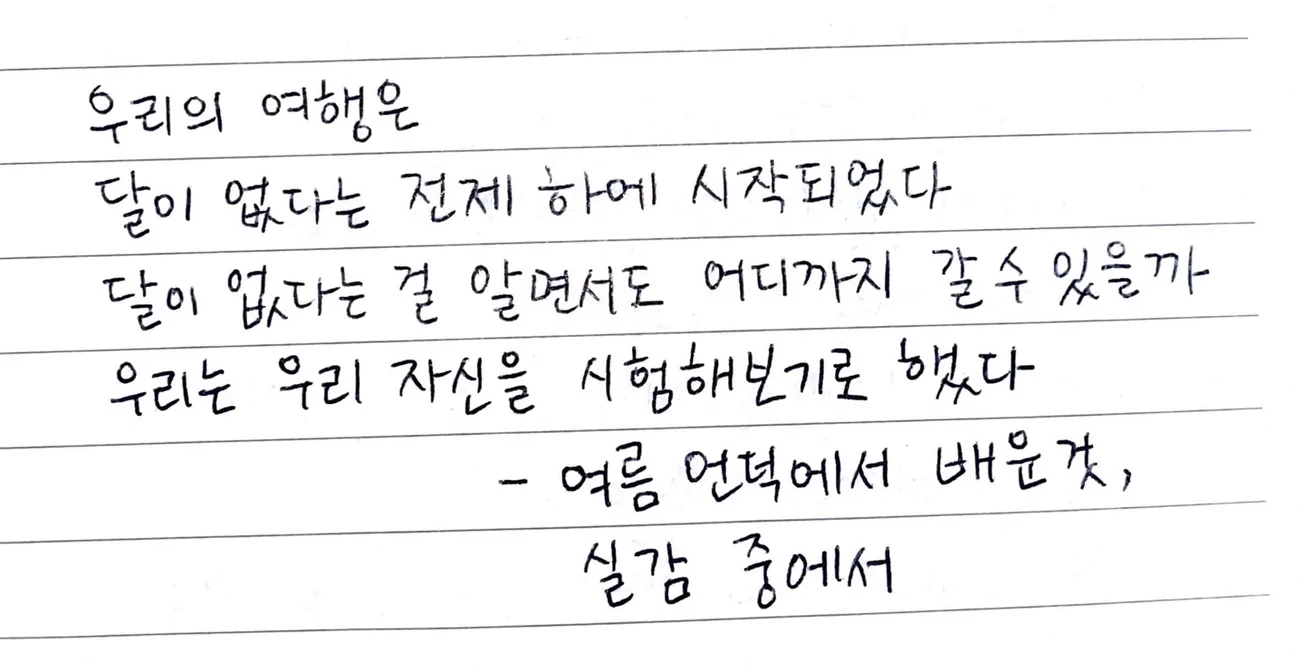 우리의 여행은
달이 없다는 전제 하에 시작되었다
달이 없다는 걸 알면서도 어디까지 갈 수 있을까
우리는 우리 자신을 시험해보기로 했다
- 여름 언덕에서 배운 것,
실감 중에서